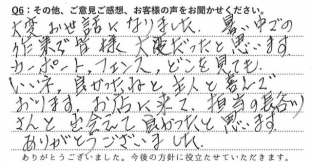 Q6：その他、ご意見ご感想、お客様の声をお聞かせください。
大変お世話になりました。暑い中での
作業で皆様大変だったと思います
カーポート、フェンス、どこを見ても
いいネ、良かったねと主人と喜んで
おります。お店に来て、担当の長谷川
さんと出会えて良かったと思います。
ありがとうございました。
ありがとうございました。今後の方針に役立たせていただきます。